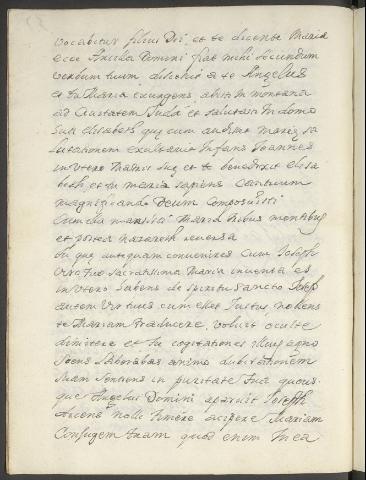 vocabitur filius Dei, et te dicente Maria
ecce Ancilla Domini fiat mihi secundum
verbum tuum discessit a te Angelus
et tu Maria exurgens abisti in montana
ad Civitatem Juda et salutasti in domo
sua elisabeth quę cum audivit Marię sa
lutationem exultavit infans Joannes
in utero matris suę et te benedixit elisa
beth, et tu maria sapiens canticum
magnificando Deum composuisti
Cum ea mansisti Maria tribus mensibus
et postea Nazareth reversa
antequam convenires cum Joseph
Viro tuo sacratissima Maria inventa es
in utero habens de spiritu sancto Joseph
autem Vir tuus cum esset Justus nollens
te Mariam traducere, voluit oculte
dimitere et tu cogitationes illius agno
scens animo dubitationem
suam sentiens in puritate tua quous
que Angelus Domini aparuit Joseph
dicens noli timere accipere Mariam
Conjugem tuam quod enim in ea